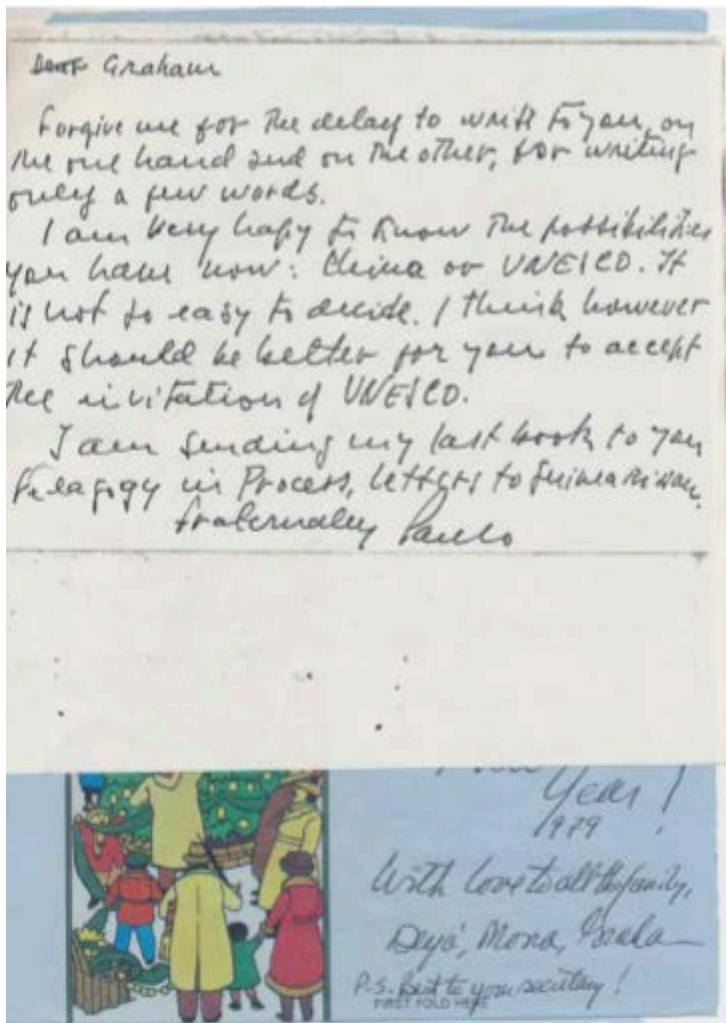 Dear Graham
Forgive me for the delay to write to you, on
the one hand and on the other, for writing
only a few words.
I am very hapy to know the possibilities
you have now: China or UNESCO. It
is not so easy to decide. I think however
it should be better for you to accept
the invitation of UNESCO.
I am sending my last book to you
Pedagogy in Process, letters to Guinea Bissau.
fraternaley Paulo
Year!
1979
With love to all the family,
Mona,
P.S. best to your secretary!
FIRST FOLD HERE